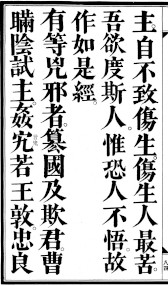 主自不致傷生傷生人最苦。
吾欲度斯人。惟恐人不悟。故
作如是經。
有等兇邪者。簒國及欺君。曹
瞞陰試主。姦宄若王敦。忠良